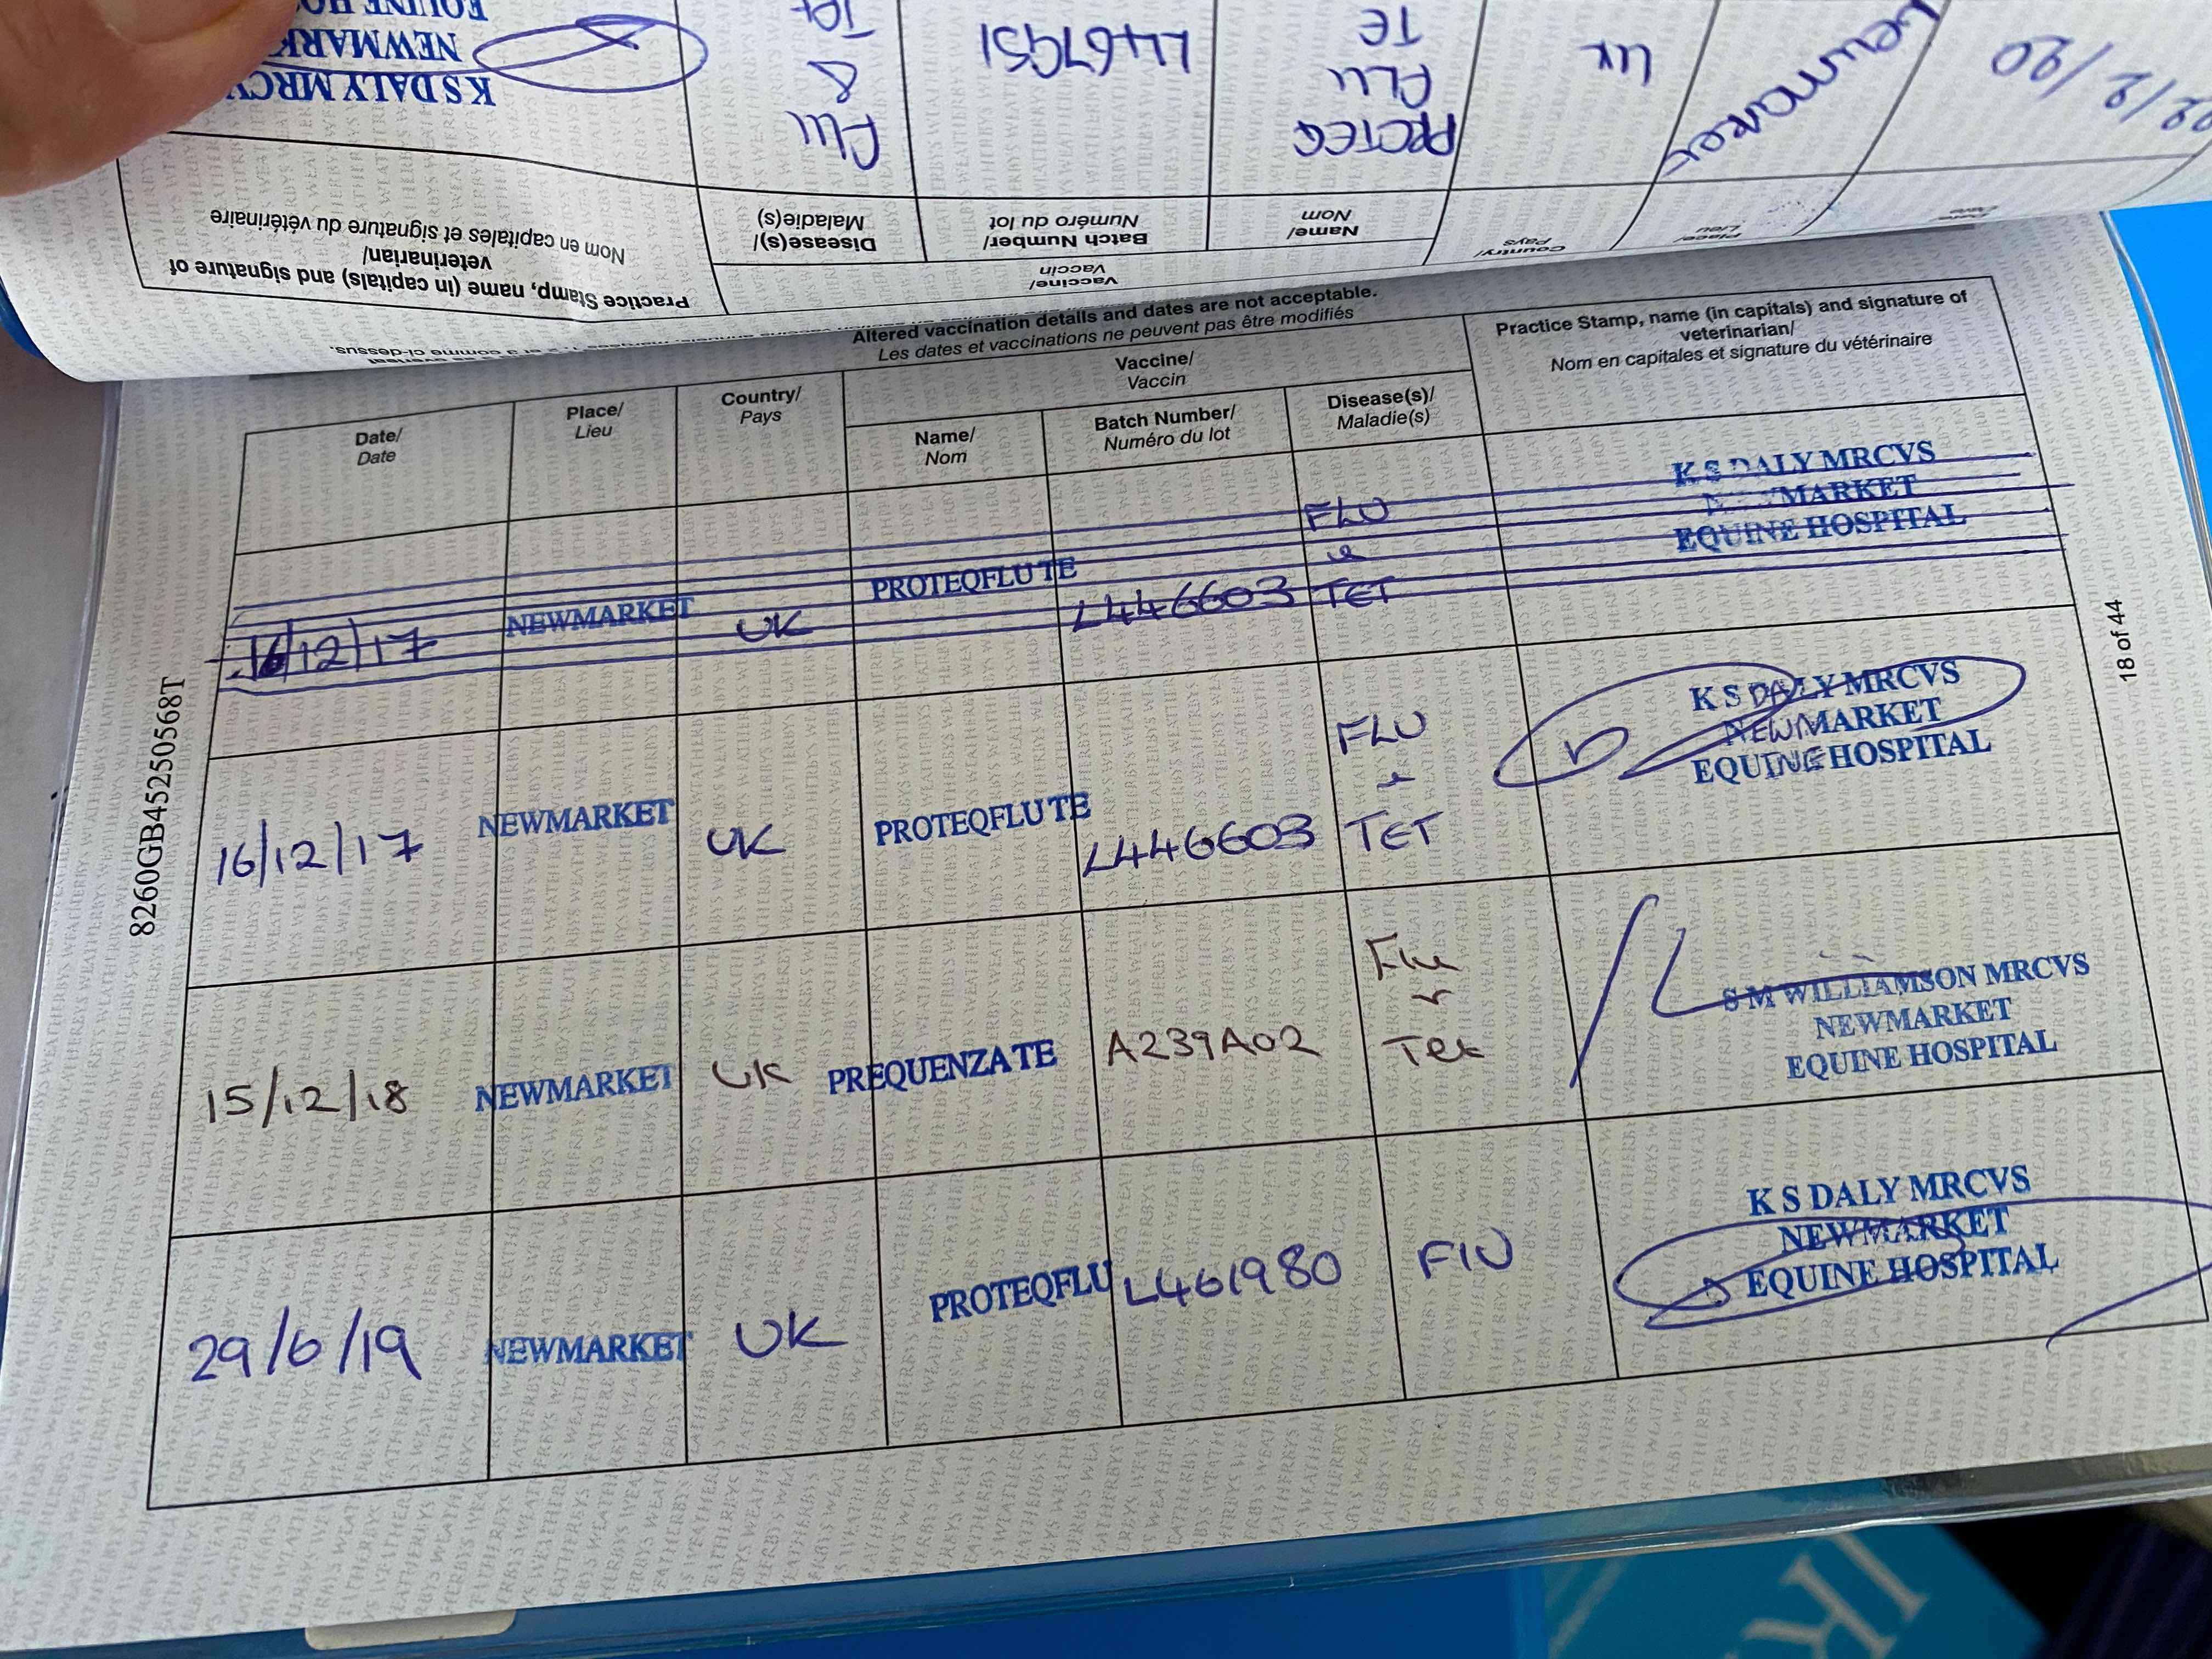 K S DALY MRCVS
NEWMARK
EQUINE HO
Flu
&
Tet
L467951
PROTEQ
FLU
TE
UK
Newmarket
Practice Stamp, name (in capitals) and signature of
veterinarian/
Nom en capitales et signature du vétérinaire
Disease(s)/
Maladie(s)
Batch Number/
Numéro du lot
Name/
Nom
Country/
Pays
Place/
Lieu
Vaccine/
Vaccin
Altered vaccination details and dates are not acceptable.
Les dates et vaccinations ne peuvent pas être modifiés
Date/
Date
Place/
Lieu
Country/
Pays
Vaccine/
Vaccin
Name/
Nom
Batch Number/
Numéro du lot
Disease(s)/
Maladie(s)
Practice Stamp, name (in capitals) and signature of
veterinarian/
Nom en capitales et signature du vétérinaire
16/12/17 NEWMARKET UK PROTEQFLU TE L446603 FLU & TET
K S DALY MRCVS
NEWMARKET
EQUINE HOSPITAL
16/12/17 NEWMARKET UK PROTEQFLU TE L446603 FLU & TET
K S DALY MRCVS
NEWMARKET
EQUINE HOSPITAL
15/12/18 NEWMARKET UK PREQUENZA TE A239A02 Flu & Tet
S M WILLIAMSON MRCVS
NEWMARKET
EQUINE HOSPITAL
29/6/19 NEWMARKET UK PROTEQFLU L461980 FlU
K S DALY MRCVS
NEWMARKET
EQUINE HOSPITAL
8260GB45250568T
18 of 44